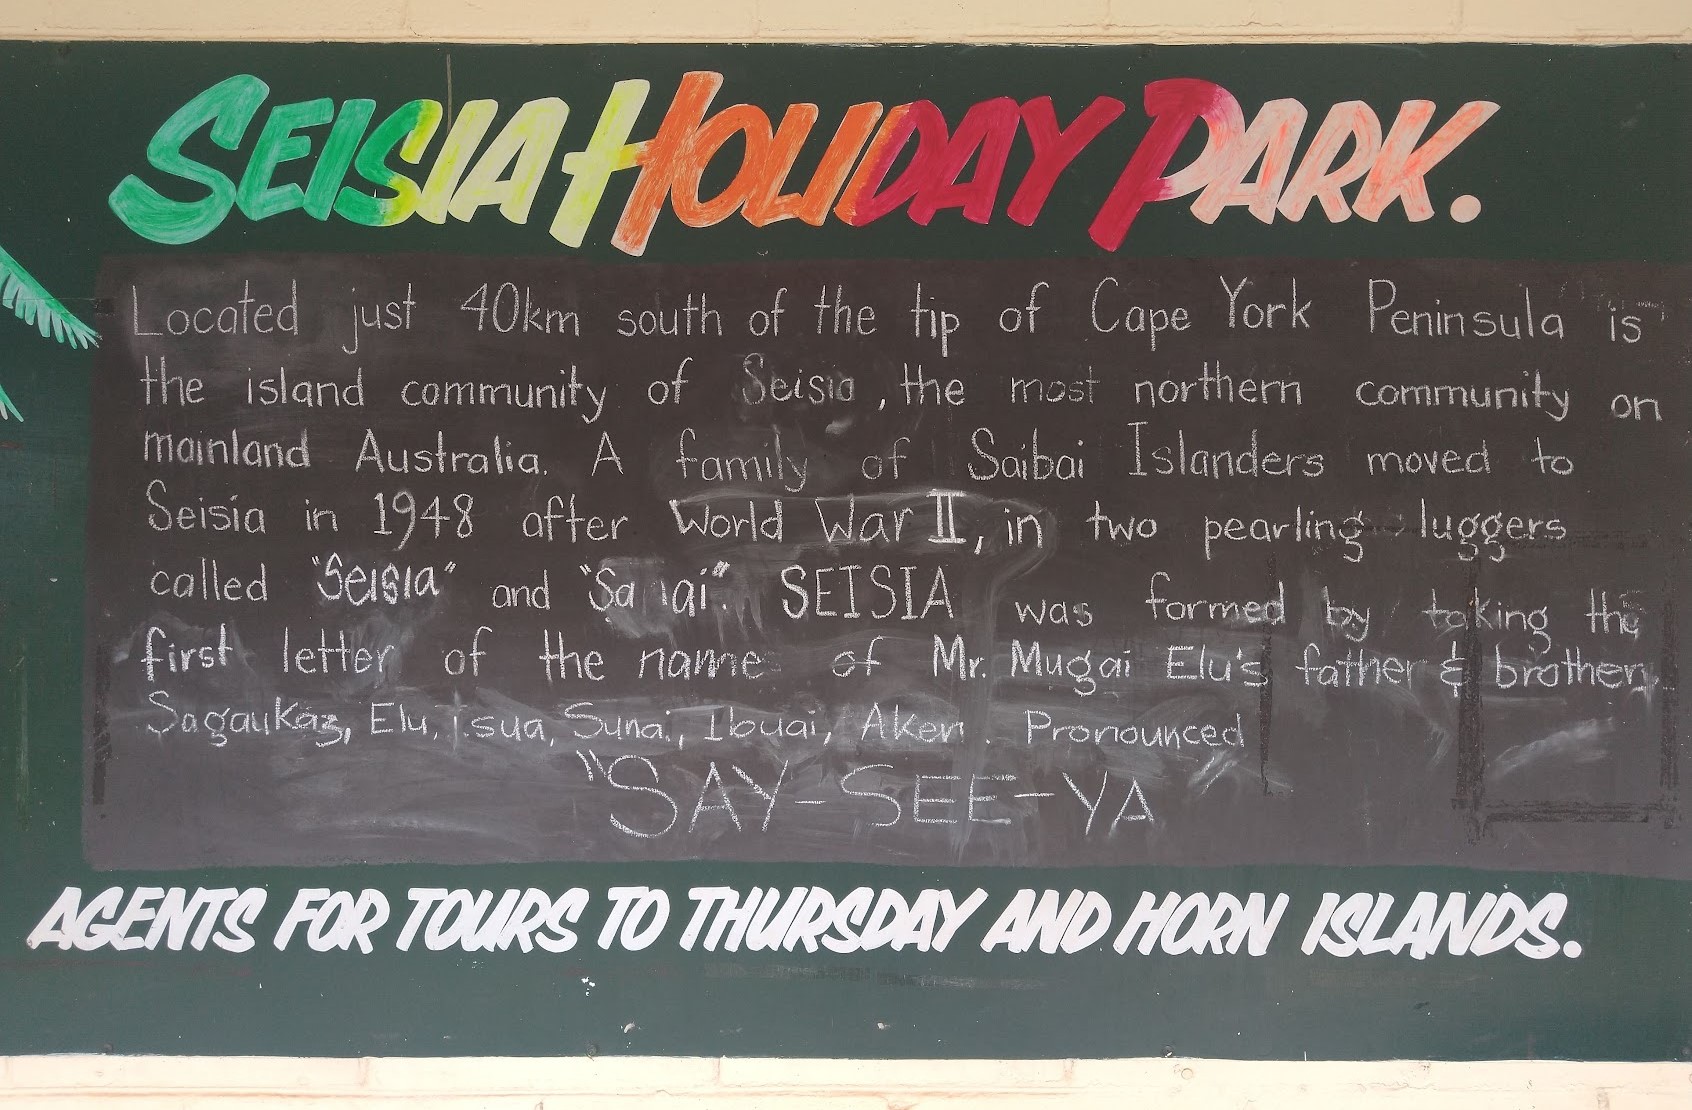 SEISIA HOLIDAY PARK.
Located just 40km south of the tip of Cape York Peninsula is
the island community of Seisia, the most northern community on
mainland Australia. A family of Saibai Islanders moved to
Seisia in 1948 after World War II, in two pearling luggers
called "Seisia" and SEISIA was formed by taking the
first letter of the name of Mr. Mugai Elu's father & brother
Sagaukaz, Elu, Isua, Sunai, Ibuai, Aken. Pronounced
"SAY-SEE-YA
AGENTS FOR TOURS TO THURSDAY AND HORN ISLANDS.